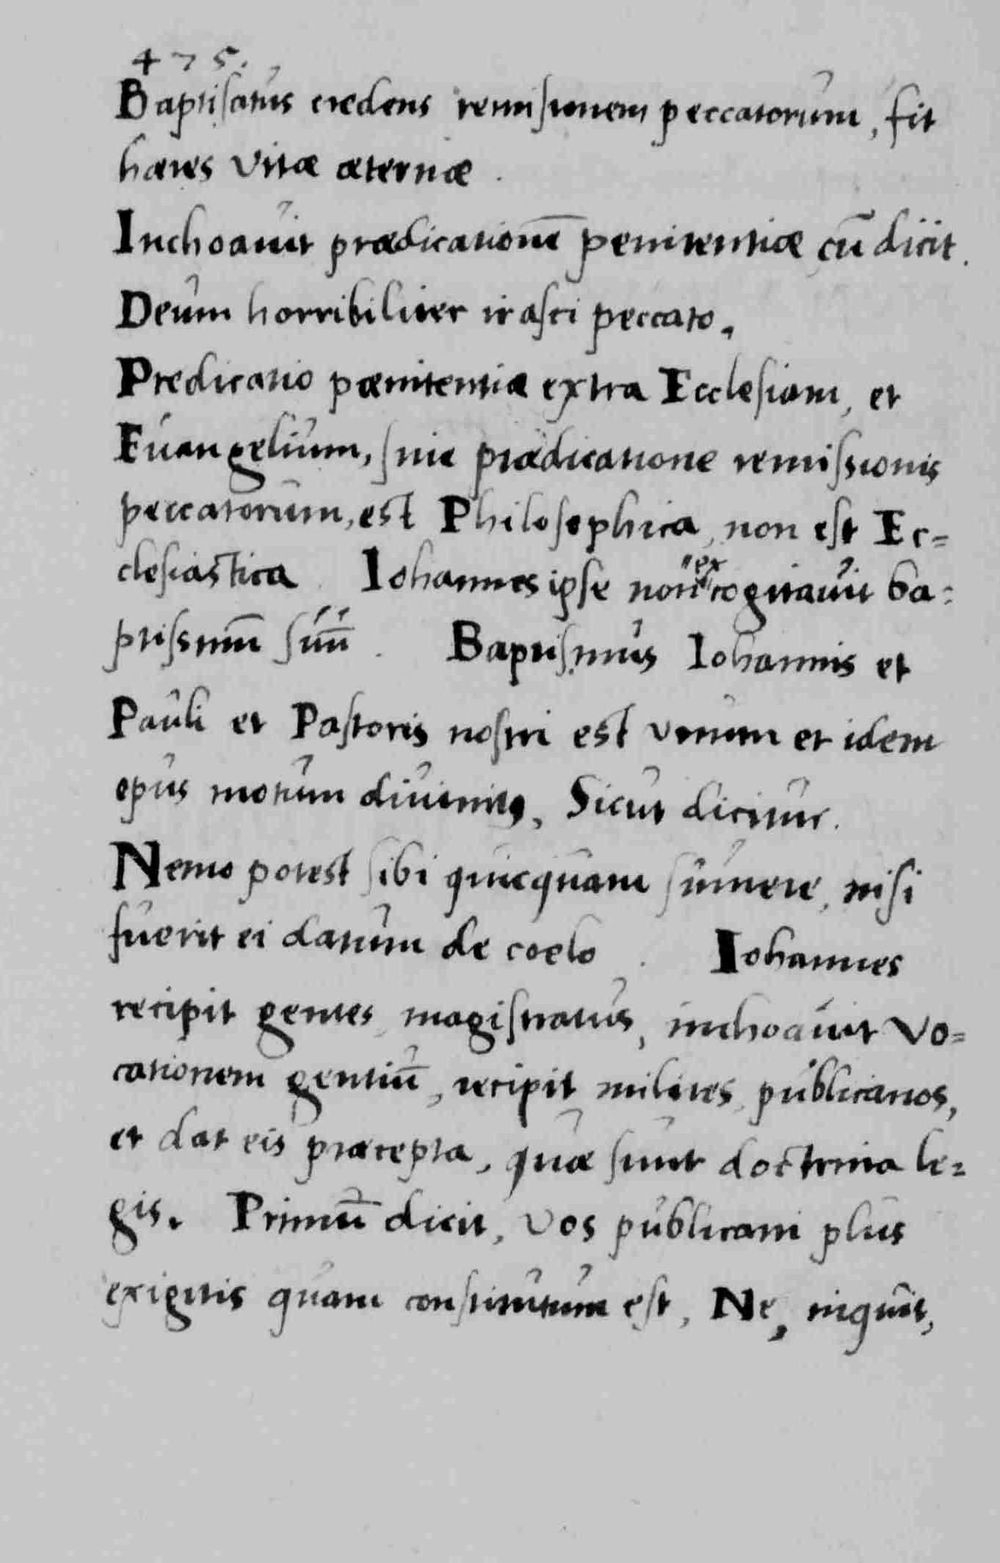 475.
Baptisatus credens remissionem peccatorum, fit
hæres vitæ æternæ.
Inchoavit prædicationē penitentiæ, cū dicit.
Deum horribiliter irasci peccato.
Predicatio pœnitentiæ extra Ecclesiam, et
Evangelium, sine prædicatione remissionis
peccatorum, est Philosophica, non est Ec=
clesiastica. Iohannes ipse non excogitavit ba=
ptissmū suū. Baptismus Iohannis et
Pauli et Pastoris nostri est unum et idem
opus motum divinitus, Sicut dicitur.
Nemo potest sibi quicquam sumere, nisi
fuerit ei datum de coelo. Iohannes
recipit gentes, magistratus, inchoavit vo=
cationem gentiū, recipit milites, publicanos,
et dat eis præcepta, quæ sunt doctrina le=
gis. Primū dicit, Vos publicani plus
exigitis quam constitutum est, Ne, inquit,